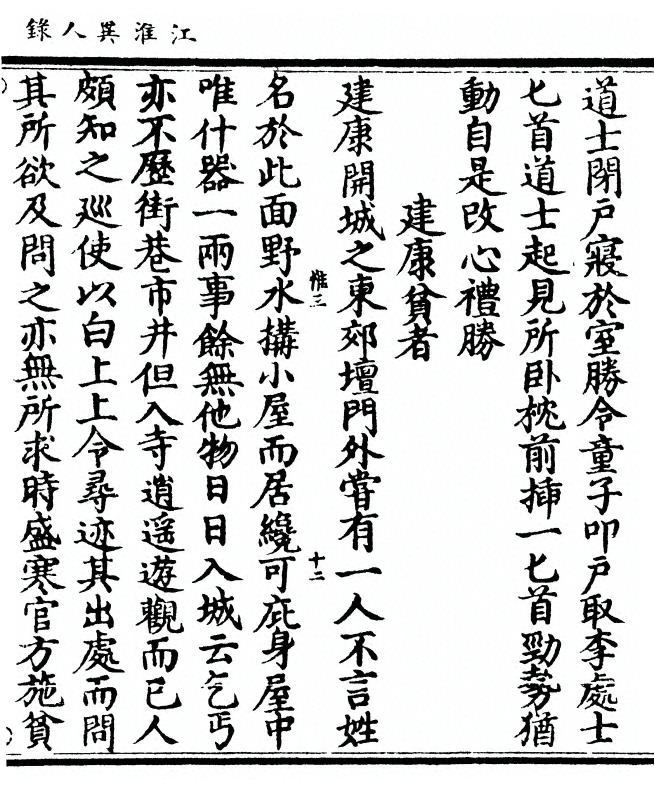 江淮異人錄
道士閉戶寢於室勝令童子叩戶取李處士
匕首道士起見所卧枕前揷一匕首勁勢猶
動自是改心禮勝
建康貧者
建康開城之東郊壇門外嘗有一人不言姓
惟三
十二
名於此面野水搆小屋而居纔可庇身屋中
唯什器一兩事餘無他物日日入城云乞丐
亦不歷街巷市井但入寺逍遥遊觀而已人
頗知之廵使以白上上令尋迹其出處而問
其所欲及問之亦無所求時盛寒官方施貧